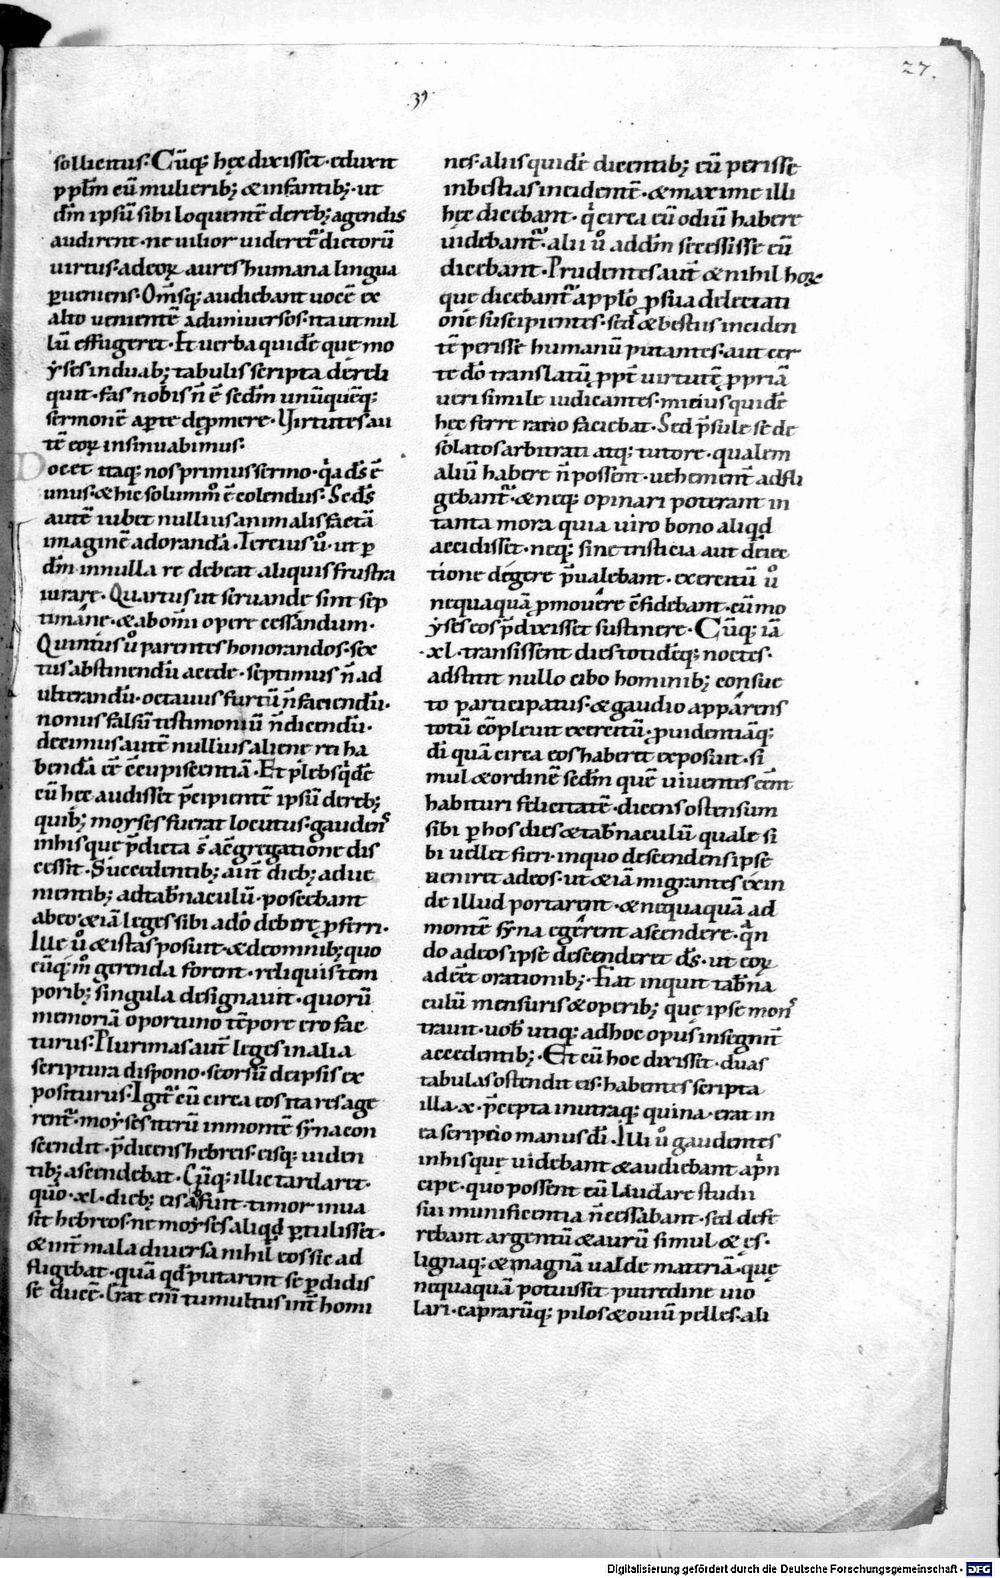 27.
sollicitus. Cūq; hęc dixisset. eduxit
p̱ pl̄m cū mulierib; & infantib;. ut
dm̄ ipsū sibi loquentē de reb; agendis
audirent. ne uilior uideret᷑ dictorū
uirtus. ad eoꝝ aures humana lingua
ꝑueniens. Om̄sq; audiebant uocē ex
alto uenientē ad uniuersos. ita ut nul
lū effugeret. Et uerba quidē que mo
ẏses in duab; tabulis scripta dereli
quit. fas nobis n̄ ē sed̄m unūquēq;
sermonē aꝑte dep̱mere. Virtutes au
tē eoꝝ insinuabimus.
Docet itaq; nos primus sermo. qa d̄s ē
unus. & hic solummo ē colendus. Sed̄s
autē iubet nullius animalis factā
imaginē adorandā. Tercius uͦ. ut ꝑ
dm̄ in nulla re debeat aliquis frustra
iurare. Quartus ut seruande sint sep
timane. & ab om̄i opere cessandum.
Quintus uͦ parentes honorandos. sex
tus abstinendū a cede. septimus n̄ ad
ulterandū. octauus furtū n̄ faciendū.
nonus falsū testimoniū n̄ dicendū.
decimus autē nullius aliene rei ha
bendā eē c̄cupiscentiā. Et plebs qdē
cū hec audisset p̄cipientē ipsū de reb;
quib; moyses fuerat locutus. gaudens
in his que p̄dicta s̄ a c̄gregatione dis
cessit. Succedentib; aut̄ dieb; adue
nientib; ad tab̄naculū. poscebant
ab eo & iā leges sibi a do deberę ꝓferri.
Ille uͦ & istas posuit. & de omnib; quo
cūq; mo gerenda forent. reliquis tem
porib; singula designauit. quorū
memoriā oportuno tēpore ero fac
turus. Plurimas aut̄ leges in alia
scriptura dispono. seorsū de ipsis ex
positurus. Igit᷑ cū circa eos ita res age
rent᷑. moẏses iterū in montē sẏna con
scendit. p̄dicens hebreis. eisq; uiden
tib; ascendebat. Cūq; illic tardaret.
quo. xl. dieb; eis abfuit. timor inua
sit hebreos. ne moẏses aliqd ꝑtulisset.
& int̄ mala diuersa nihil eos sic ad
fligebat. quā qd putarent se ꝑdidis
se ducē. Erat eni tumultus int̄ homi
nes. aliis quidē dicentib; eū perisse
in bestias incidentē. & maxime illi
hęc dicebant. qi circa eū odiū habere
uidebant᷑. alii uͦ ad dm̄ secessisse eū
dicebant. Prudentes aut̄ & nihil hoꝝ
que dicebant᷑ a pplo ꝓ sua delectati
one suscipientes. sed & bestiis inciden
tē perisse humanū putantes. aut cer
te do translatū ꝓpt̄ uirtutē ꝓpriā
ueri simile iudicantes. micius quidē
hęc ferre ratio faciebat. Sed p̄sule se de
solatos arbitrati atq; tutore. qualem
aliū habere n̄ possent. uehement̄ adfli
gebant᷑. & neq; opinari poterant in
tanta mora quia uiro bono aliqd
accidisset. neq; sine tristicia aut deiec
tione degere p̄ualebant. exercitū uͦ
nequaquā ꝓmouere c̄fidebant. cū mo
ẏses eos p̄dixisset sustinere. Cūq; iā
.xl. transissent dies totidēq; noctes.
adstitit nullo cibo hominib; consue
to participatus. & gaudio apparens
totū cōpleuit exercitū. ꝓuidentiāq;
di quā circa eos haberet exposuit. si
mul & ordinē sed̄m quē uiuentes eēnt
habituri felicitatē. dicens ostensum
sibi ꝑ hos dies & tab̄naculū quale si
bi uellet fieri. in quo descendens ipse
ueniret ad eos. ut & iā migrantes exin
de illud portarent. & nequaquā ad
montē sẏna egerent ascendere. qn
do ad eos ipse descenderet d̄s. ut eoꝝ
adeēt orationib;. Fiat inquit tab̄na
culū mensuris & operib; que ipse mons
trauit. uob̄ utiq; ad hoc opus insegnit̄
accedentib;. Et cū hoc dixisset. duas
tabulas ostendit eis. habentes scripta
illa .x. p̄cepta in utraq; quina. erat in
ea scriptio manus di. Illi uͦ gaudentes
in his que uidebant & audiebant a p̄n
cipe. quo possent eū laudare studii
sui munificentia n̄ cessabant. sed defe
rebant argentū & aurū simul & es.
lignaq; & magnā ualde materiā. que
nequaquā potuisset putredine uio
lari. caprarūq; pilos & ouiū pelles. ali
Digitalisierung gefördert durch die Deutsche Forschungsgemeinschaft - DFG